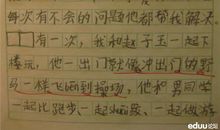 每次有不会的问题他都帮我解决。
有一次，我和赵子玉一起下
楼玩，他一出门就像冲出门的野
马一样飞奔到操场，他和男同学
一起比跑步、一起  、一起做游
eduu论坛